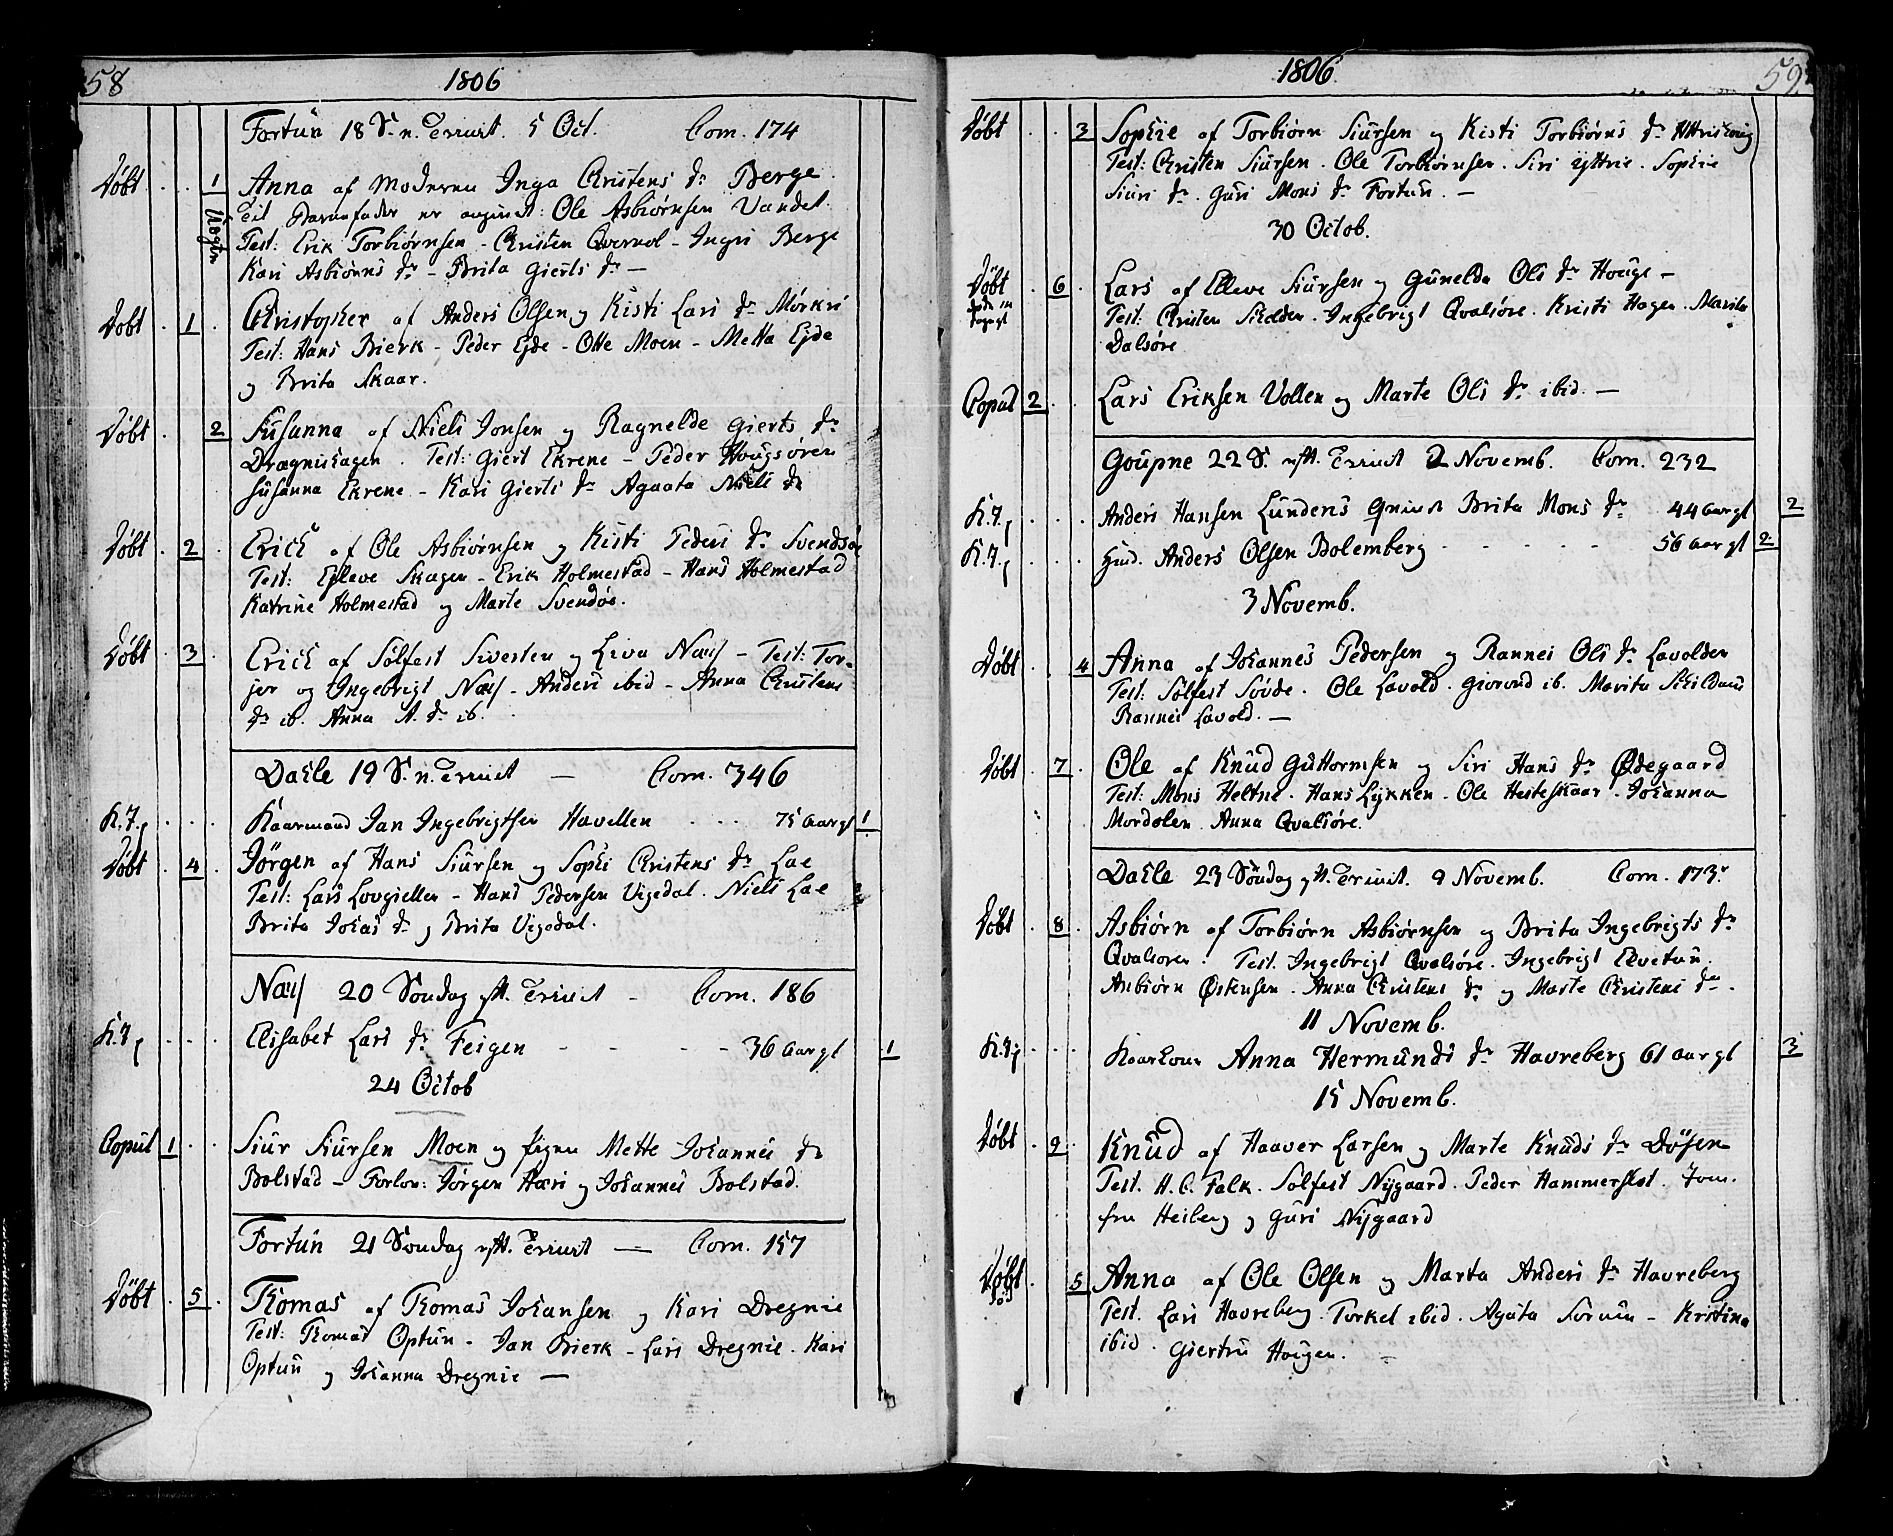 58
1806
Fortun 18 S. n. Trinit. 5 Oct. Com. 174
Døbt 1 Anna af Moderen Inga Christens Dr Berge
Uægte
Til Barnefader er angivet: Ole Asbiørnsen Vandet.
Test: Erik Torbiørnsen - Christen Qvernol - Ingri Berge
Kari Asbiørns Dr - Brita Gierts Dr -
Døbt 1 Christopher af Anders Olsen og Kisti Lars Dr Mørkri
Test: Hans Bierk - Peder Ejde - Otte Moen - Metta Ejde
og Brita Skaar.
Døbt 2 Susanna af Niels Jonsen og Ragnelde Gierts Dr
Drægnishagen. Test: Giert Ekrene - Peder Hougsøren
Susanna Ekrene - Kari Gierts Dr Agaata Niels Dr
Døbt 2 Erich af Ole Asbiørnsen og Kisti Peders Dr Svendsøe
Test: Ejleve Skagen - Erik Holmestad - Hans Holmestad
Katrine Holmestad og Marte Svendøe.
Døbt 3 Erich af Solfest Siversen og Liva Næss - Test: Tor-
jer og Ingebrigt Næss - Anders ibid - Anna Christens
Dr ib. Anna A. Dr ib.
Dahle 19 S. n. Trinit - Com. 346
K. J. Kaarmand Jan Ingebrigtsen Havellen 75 Aar gl 1
Døbt 4 Jørgen af Hans Siursen og Sophi Christens Dr Lae
Test: Lars Lovgiellen - Hans Pedersen Vigedal. Niels Lae
Brita Johas Dr og Brita Vigedal.
Næss 20 Søndag eft. Trinit - Com. 186
K. J. Elisabet Lars Dr Feigen - - - 36 Aar gl 1
24 Octob
Copul 1 Siur Siursen Moen og Pigen Mette Johannes Dr
Bolstad - Forlov: Jørgen Hæri og Johannes Bolstad.
Fortun 21 Søndag eft. Trinit - Com. 157
Døbt 5 Thomas af Thomas Johansen og Kari Dregnie
Test: Thomas Optun - Jan Bierk - Lars Dregnie. Kari
Optun og Johanna Dregnie -
1806
59
Døbt 3 Sophie af Torbiørn Siursen og Kisti Torbiørns Dr
Test: Christen Siursen. Ole Torbiørnsen. Siri Yttrie. Sophie
Siuri Dr. Guri Mons Dr Fortun. -
30 Octob.
Døbt 6 Lars af Elleve Siursen og Gunelda Ols Dr Houge -
Test: Christen Skolden. Ingebrigt Qvalsøre. Kristi Hagen. Marita
Dalsøre
Copul 2 Lars Eriksen Vollen og Marte Ols Dr ibid. -
Goupne 22 S. eft. Trinit 2 Novemb. Com. 232
K. J. Anders Hansen Lundens Qvinde Brita Mons Dr 44 Aar gl 2
K. J. Hus. Anders Olsen Bolemberg - - - - 56 Aar gl 2
3 Novemb.
Døbt 4 Anna af Johannes Pedersen og Rannei Ols Dr Lavolden
Test: Solfest Søvde. Ole Lavold. Giorond ib. Marita
Rannei Lavold. -
Døbt 7 Ole af Knud Guttormsen og Siri Hans Dr Ødegaard
Test: Mons Heltne. Hans Lykken. Ole Hesteskaar. Johanna
Mordolen. Anna Qvalsøre.
Dahle 23 Søndag eft. Trinit. 9 Novemb. Com. 173.
Døbt 8 Asbiørn af Torbiørn Asbiørnsen og Brita Ingebrigts Dr
Qvalsøren. Test. Ingebrigt Qvalsøre. Ingebrigt Elvetun.
Anbiørn Østensen. Anna Christens Dr og Marte Christens Dr.
11 Novemb.
K. J. Kaarkone Anna Hermunds Dr Havreberg 61 Aar gl 3
15 Novemb.
Døbt 9 Knud af Haaver Larsen og Marte Knuds Dr Døsen
Test. H. C. Falk. Solfest Nygaard. Peder Hammerslot. Jom-
fru Heiberg og Guri Nygaard
Døbt 5 Anna af Ole Olsen og Marta Anders Dr Havreberg
Test. Lars Havreberg. Torkel ibid. Agata Sorum - Kristina
ibid. Giertru Hougen. -